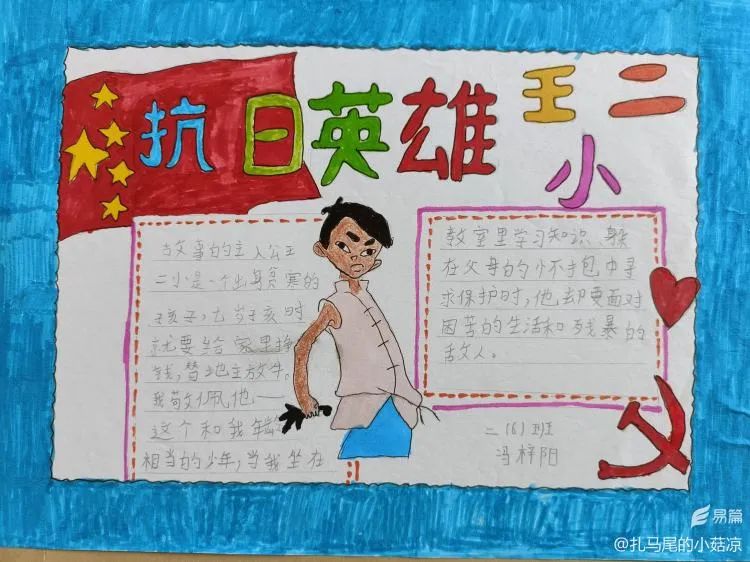 抗日英雄王二
小
故事的主人公王
二小是一个出身贫寒的
孩子,七岁时
就要给家里挣
钱,替地主放牛。
我敬佩他——
这个和我年龄
相当的少年,当我坐在
教室里学习知识、躲
在父母的怀抱中寻
求保护时,他却要面对
困苦的生活和残暴的
敌人。
二(6)班
冯梓阳
易篇
@扎马尾的小菇凉